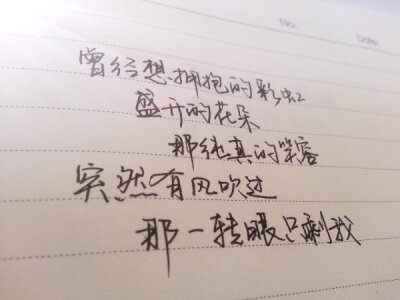 No.
Date
曾经想拥抱的彩虹
盛开的花朵
那纯真的笑容
突然有风吹过
那一转眼只剩我